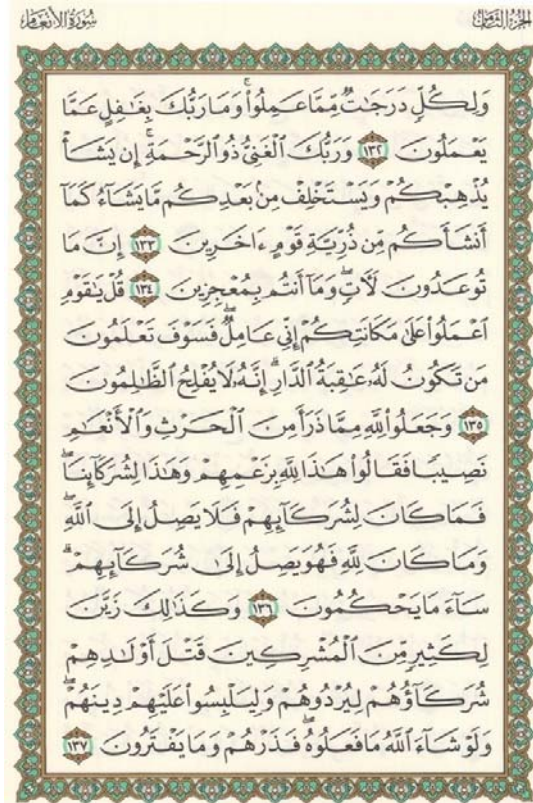 سُورَةُ الأَنْعَامِ
الجُزْءُ الثَّامِنُ
وَلِكُلٍّ دَرَجَٰتٌ مِّمَّا عَمِلُوا۟ ۚ وَمَا رَبُّكَ بِغَٰفِلٍ عَمَّا
يَعْمَلُونَ ١٣٢ وَرَبُّكَ ٱلْغَنِىُّ ذُو ٱلرَّحْمَةِ ۚ إِن يَشَأْ
يُذْهِبْكُمْ وَيَسْتَخْلِفْ مِنۢ بَعْدِكُم مَّا يَشَآءُ كَمَآ
أَنشَأَكُم مِّن ذُرِّيَّةِ قَوْمٍ ءَاخَرِينَ ١٣٣ إِنَّ مَا
تُوعَدُونَ لَءَاتٍ ۖ وَمَآ أَنتُم بِمُعْجِزِينَ ١٣٤ قُلْ يَٰقَوْمِ
ٱعْمَلُوا۟ عَلَىٰ مَكَانَتِكُمْ إِنِّى عَامِلٌ ۖ فَسَوْفَ تَعْلَمُونَ
مَن تَكُونُ لَهُۥ عَٰقِبَةُ ٱلدَّارِ ۗ إِنَّهُۥ لَا يُفْلِحُ ٱلظَّٰلِمُونَ
١٣٥ وَجَعَلُوا۟ لِلَّهِ مِمَّا ذَرَأَ مِنَ ٱلْحَرْثِ وَٱلْأَنْعَٰمِ
نَصِيبًا فَقَالُوا۟ هَٰذَا لِلَّهِ بِزَعْمِهِمْ وَهَٰذَا لِشُرَكَآئِنَا ۖ
فَمَا كَانَ لِشُرَكَآئِهِمْ فَلَا يَصِلُ إِلَى ٱللَّهِ ۖ
وَمَا كَانَ لِلَّهِ فَهُوَ يَصِلُ إِلَىٰ شُرَكَآئِهِمْ ۗ
سَآءَ مَا يَحْكُمُونَ ١٣٦ وَكَذَٰلِكَ زَيَّنَ
لِكَثِيرٍ مِّنَ ٱلْمُشْرِكِينَ قَتْلَ أَوْلَٰدِهِمْ
شُرَكَآؤُهُمْ لِيُرْدُوهُمْ وَلِيَلْبِسُوا۟ عَلَيْهِمْ دِينَهُمْ ۖ
وَلَوْ شَآءَ ٱللَّهُ مَا فَعَلُوهُ ۖ فَذَرْهُمْ وَمَا يَفْتَرُونَ ١٣٧